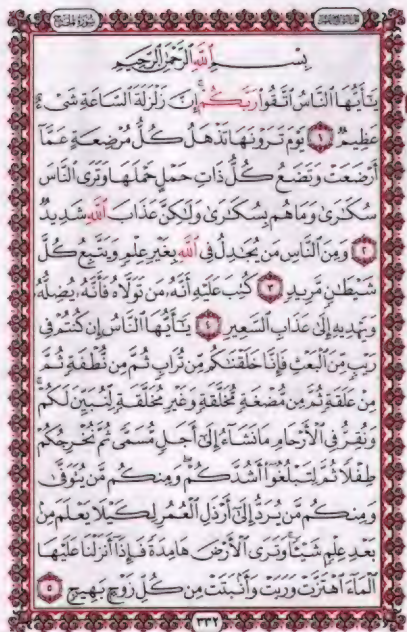 سُورَةُ الحَجِّ
بِسْمِ ٱللَّهِ ٱلرَّحْمَٰنِ ٱلرَّحِيمِ
يَٰٓأَيُّهَا ٱلنَّاسُ ٱتَّقُوا۟ رَبَّكُمْ ۚ إِنَّ زَلْزَلَةَ ٱلسَّاعَةِ شَىْءٌ
عَظِيمٌ ١ يَوْمَ تَرَوْنَهَا تَذْهَلُ كُلُّ مُرْضِعَةٍ عَمَّآ
أَرْضَعَتْ وَتَضَعُ كُلُّ ذَاتِ حَمْلٍ حَمْلَهَا وَتَرَى ٱلنَّاسَ
سُكَٰرَىٰ وَمَا هُم بِسُكَٰرَىٰ وَلَٰكِنَّ عَذَابَ ٱللَّهِ شَدِيدٌ
٢ وَمِنَ ٱلنَّاسِ مَن يُجَٰدِلُ فِى ٱللَّهِ بِغَيْرِ عِلْمٍ وَيَتَّبِعُ كُلَّ
شَيْطَٰنٍ مَّرِيدٍ ٣ كُتِبَ عَلَيْهِ أَنَّهُۥ مَن تَوَلَّاهُ فَأَنَّهُۥ يُضِلُّهُۥ
وَيَهْدِيهِ إِلَىٰ عَذَابِ ٱلسَّعِيرِ ٤ يَٰٓأَيُّهَا ٱلنَّاسُ إِن كُنتُمْ فِى
رَيْبٍ مِّنَ ٱلْبَعْثِ فَإِنَّا خَلَقْنَٰكُم مِّن تُرَابٍ ثُمَّ مِن نُّطْفَةٍ ثُمَّ
مِنْ عَلَقَةٍ ثُمَّ مِن مُّضْغَةٍ مُّخَلَّقَةٍ وَغَيْرِ مُخَلَّقَةٍ لِّنُبَيِّنَ لَكُمْ ۚ
وَنُقِرُّ فِى ٱلْأَرْحَامِ مَا نَشَآءُ إِلَىٰٓ أَجَلٍ مُّسَمًّى ثُمَّ نُخْرِجُكُمْ
طِفْلًا ثُمَّ لِتَبْلُغُوٓا۟ أَشُدَّكُمْ ۖ وَمِنكُم مَّن يُتَوَفَّىٰ
وَمِنكُم مَّن يُرَدُّ إِلَىٰٓ أَرْذَلِ ٱلْعُمُرِ لِكَيْلَا يَعْلَمَ مِنۢ
بَعْدِ عِلْمٍ شَيْـًٔا ۚ وَتَرَى ٱلْأَرْضَ هَامِدَةً فَإِذَآ أَنزَلْنَا عَلَيْهَا
ٱلْمَآءَ ٱهْتَزَّتْ وَرَبَتْ وَأَنۢبَتَتْ مِن كُلِّ زَوْجٍۭ بَهِيجٍ ٥
٣٣٢